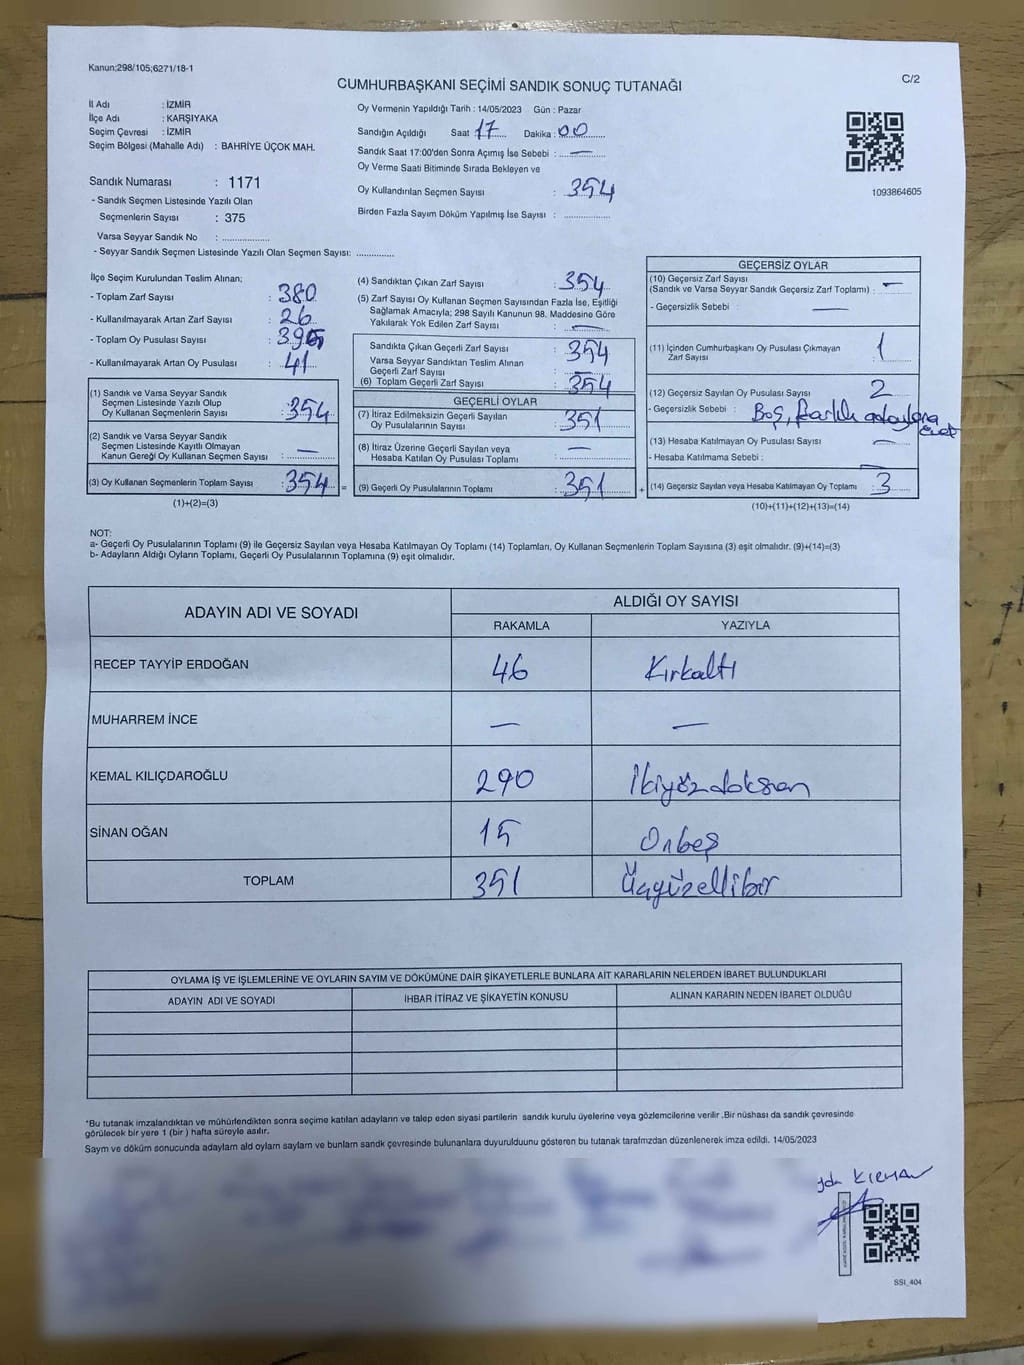 Kanun:298/105;6271/18-1
CUMHURBAŞKANI SEÇİMİ SANDIK SONUÇ TUTANAĞI
C/2
İl Adı : İZMİR
İlçe Adı : KARŞIYAKA
Seçim Çevresi : İZMİR
Seçim Bölgesi (Mahalle Adı) : BAHRİYE ÜÇOK MAH.
Sandık Numarası : 1171
- Sandık Seçmen Listesinde Yazılı Olan
Seçmenlerin Sayısı : 375
Varsa Seyyar Sandık No : ..................
- Seyyar Sandık Seçmen Listesinde Yazılı Olan Seçmen Sayısı: ..............
Oy Vermenin Yapıldığı Tarih : 14/05/2023 Gün : Pazar
Sandığın Açıldığı Saat 17 Dakika : 00
Sandık Saat 17:00'den Sonra Açımış İse Sebebi : —
Oy Verme Saati Bitiminde Sırada Bekleyen ve
Oy Kullandırılan Seçmen Sayısı : 354
Birden Fazla Sayım Döküm Yapılmış İse Sayısı : ..................
1093864605
İlçe Seçim Kurulundan Teslim Alınan;
- Toplam Zarf Sayısı : 380
- Kullanılmayarak Artan Zarf Sayısı : 26
- Toplam Oy Pusulası Sayısı : 395
- Kullanılmayarak Artan Oy Pusulası : 41
(1) Sandık ve Varsa Seyyar Sandık
Seçmen Listesinde Yazılı Olup
Oy Kullanan Seçmenlerin Sayısı : 354
(2) Sandık ve Varsa Seyyar Sandık
Seçmen Listesinde Kayıtlı Olmayan
Kanun Gereği Oy Kullanan Seçmen Sayısı : —
(3) Oy Kullanan Seçmenlerin Toplam Sayısı : 354 =
(1)+(2)=(3)
(4) Sandıktan Çıkan Zarf Sayısı : 354
(5) Zarf Sayısı Oy Kullanan Seçmen Sayısından Fazla İse, Eşitliği
Sağlamak Amacıyla; 298 Sayılı Kanunun 98. Maddesine Göre
Yakılarak Yok Edilen Zarf Sayısı : —
Sandıkta Çıkan Geçerli Zarf Sayısı : 354
Varsa Seyyar Sandıktan Teslim Alınan
Geçerli Zarf Sayısı : —
(6) Toplam Geçerli Zarf Sayısı : 354
GEÇERLİ OYLAR
(7) İtiraz Edilmeksizin Geçerli Sayılan
Oy Pusulalarının Sayısı : 351
(8) İtiraz Üzerine Geçerli Sayılan veya
Hesaba Katılan Oy Pusulası Toplamı : —
(9) Geçerli Oy Pusulalarının Toplamı : 351 +
GEÇERSİZ OYLAR
(10) Geçersiz Zarf Sayısı
(Sandık ve Varsa Seyyar Sandık Geçersiz Zarf Toplamı) : —
- Geçersizlik Sebebi : —
(11) İçinden Cumhurbaşkanı Oy Pusulası Çıkmayan
Zarf Sayısı : 1
(12) Geçersiz Sayılan Oy Pusulası Sayısı : 2
- Geçersizlik Sebebi : Boş, farklı adaylara
evet
(13) Hesaba Katılmayan Oy Pusulası Sayısı : —
- Hesaba Katılmama Sebebi : —
(14) Geçersiz Sayılan veya Hesaba Katılmayan Oy Toplamı : 3
(10)+(11)+(12)+(13)=(14)
NOT:
a- Geçerli Oy Pusulalarının Toplamı (9) ile Geçersiz Sayılan veya Hesaba Katılmayan Oy Toplamı (14) Toplamları, Oy Kullanan Seçmenlerin Toplam Sayısına (3) eşit olmalıdır. (9)+(14)=(3)
b- Adayların Aldığı Oyların Toplamı, Geçerli Oy Pusulalarının Toplamına (9) eşit olmalıdır.
ADAYIN ADI VE SOYADI
ALDIĞI OY SAYISI
RAKAMLA YAZIYLA
RECEP TAYYİP ERDOĞAN 46 Kırkaltı
MUHARREM İNCE — —
KEMAL KILIÇDAROĞLU 290 İkiyüzdoksan
SİNAN OĞAN 15 Onbeş
TOPLAM 351 Üçyüzellibir
OYLAMA İŞ VE İŞLEMLERİNE VE OYLARIN SAYIM VE DÖKÜMÜNE DAİR ŞİKAYETLERLE BUNLARA AİT KARARLARIN NELERDEN İBARET BULUNDUKLARI
ADAYIN ADI VE SOYADI İHBAR İTİRAZ VE ŞİKAYETİN KONUSU ALINAN KARARIN NEDEN İBARET OLDUĞU
*Bu tutanak imzalandıktan ve mühürlendikten sonra seçime katılan adayların ve talep eden siyasi partilerin sandık kurulu üyelerine veya gözlemcilerine verilir .Bir nüshası da sandık çevresinde
görülecek bir yere 1 (bir ) hafta süreyle asılır.
Sayım ve döküm sonucunda adaylarn ald oylarn saylarn ve bunlarn sandk çevresinde bulunanlara duyurulduunu gösteren bu tutanak tarafmzdan düzenlenerek imza edildi. 14/05/2023
SSI_404